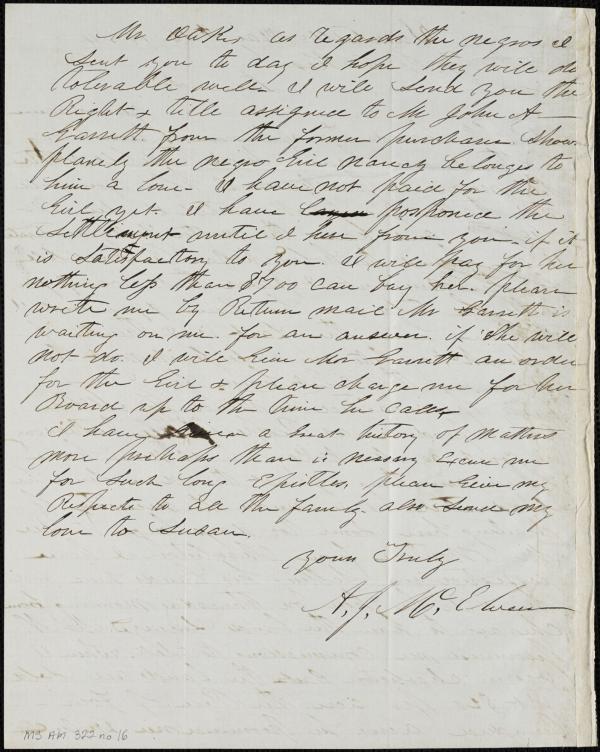 Mr Oakes as regards the negros I
sent you to day I hope they will do
tolerable well. I will send you the
Right & title assigned to Mr John A
Garrett from the former purchase show
planely the negro Girl nancy belonges to
him a lone. I have not paid for the
Girl yet. I have postponed the
settlement until I hear from you. if it
is satisfactory to you. I will pay for her
nothing less than $700 can buy her. please
write me by Return mail Mr Garrett is
waiting on me. for an answer. if she will
not do. I will Give Mr Garrett an order
for the Girl & please charge me for her
Board up to the time he calls
I have a Great history of matters
more perhaps than is nessary Excuse me
for such long Epistles. please Give my
Respects to all the family. also send my
love to Susan.
Yours Truly
A. J. McElveen
MS AM 322 no 16